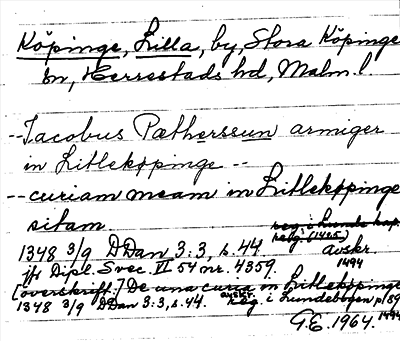 Köpinge, Lilla, by, Stora Köpinge
sn, Herrestads hd, Malm. l.
--Iacobus Pætherssun armiger
in Litlekøpinge--
--curiam meam in Litlekøpinge
sitam
reg. i Lunde kap.
1348 3/9 DDan 3:3, s. 44. avskr.
1494
jfr Dipl. Svec. VI 54 nr. 4359.
[överskrift:] De una curia in Litlekøpinge
1348 3/9 DDan 3:3, s. 44. avskr. reg. i Lundebogen pl 89
1494
G.E. 1964.